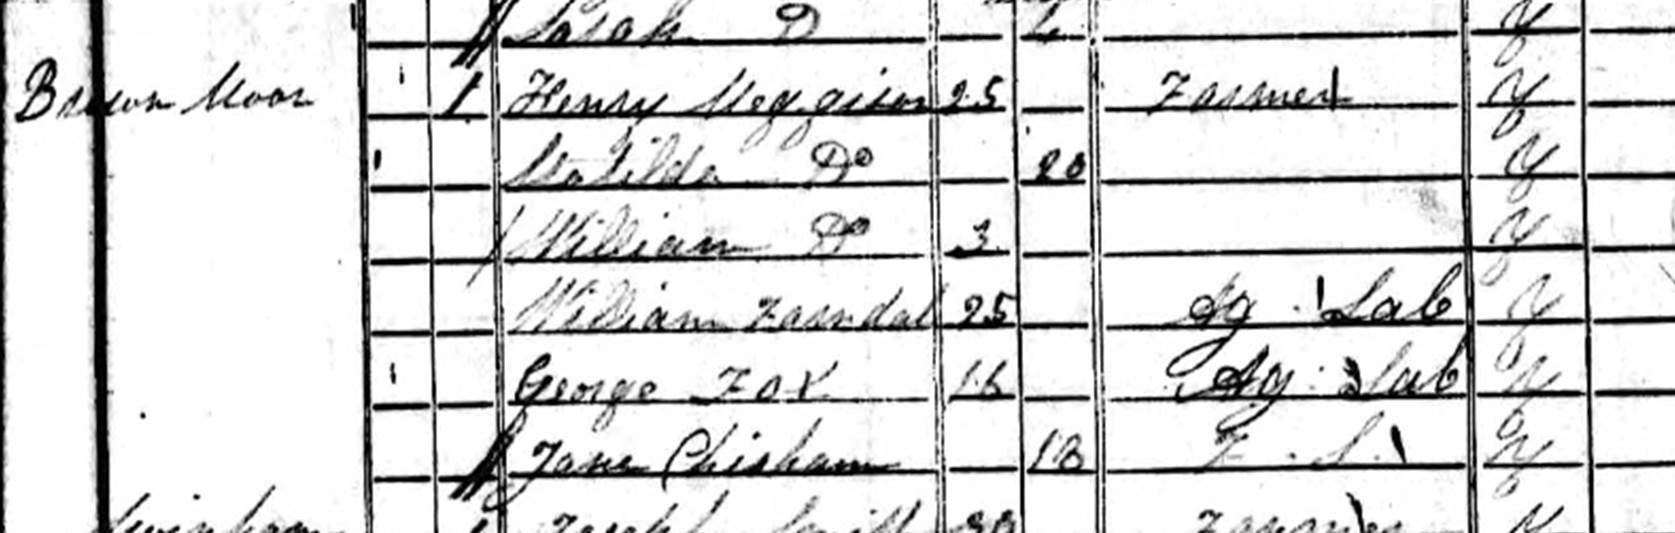 Sarah D
Brown Moor 1 1 Henry Meggison 25 Farmer Y
1 Matilda Do 20 Y
William Do 3 Y
William Farndal 25 Ag Lab Y
1 George Fox 16 Ag Lab Y
Jane Chisham 18 F. S. Y
1 Joseph Farmer